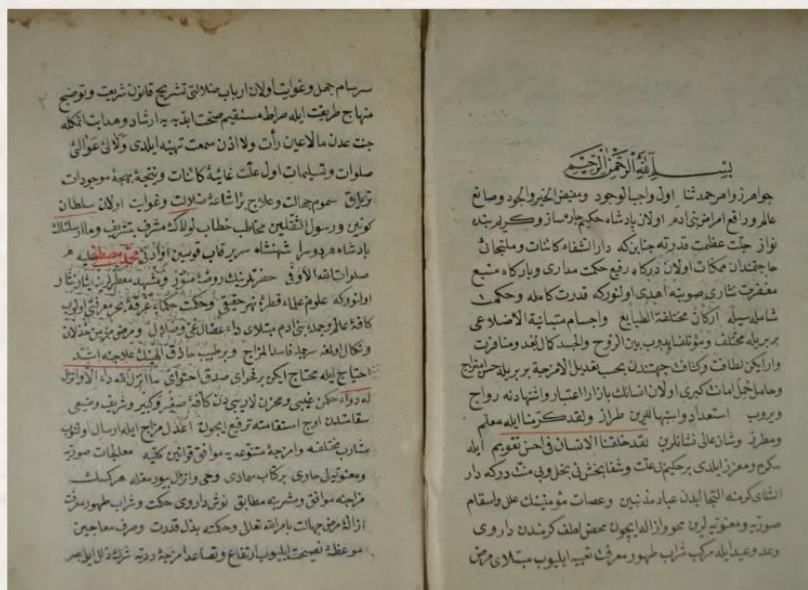 بسم الله الرحمن الرحيم
جواهر زواهر حمد و ثنا اول واجب الوجود و مفيض الخير و الجود و صانع
عالم و رافع امراض بنی آدم اولان پادشاه حكيم چاره ساز و كريم بنده
نواز جلت عظمت قدرته جنابنكه دار الشفاء كائنات و ملتجای
حاجتمندان ممكنات اولان درگاه رفيع حكمت مداری و بارگاه منبع
مغفرت نثاری صوبنه اهدی اولنور كه قدرت كامله و حكمت
شامله سيله اركان مختلفة الطبايع و اجسام متباينة الاضلاعی
بربريله مختلف و مؤتلف ايدوب بين الروح و الجسد كمال بعد و منافرت
وار ايكن لطافت و كثافت جهتندن بحسب تعديل الامزجه بربريله
و حامل حمل امانت كبری اولان انسانك بازار اعتبار و اشتهادنه رواج
و يروب استعداد و ابتهاللرين طراز و لقد كرمنا ايله معلم
و مطرز و شان عالی نشانلرين لقد خلقنا الانسان فی احسن تقويم ايله
مكرم و معزز ايلدی بر حكيم بی علت و شفا بخش بی بخل و بی منت درکه دار
الشفای كرمنه التجا ايدن عباد مذنبين و عصات مؤمنينك علل و اسقام
صوريه و معنويه لرين محو و ازاله ايچون محض لطف و كرمندن داروی
وعد و وعيد ايله مركب شراب طهور معرفت تعبيه ايليوب مبتلای مرض
سرسام جهل و غوايت اولان ارباب ضلالتی تشريح قانون شريعت و توضيح
منهاج طريقت ايله صراط مستقيم صحت ابديه يه ارشاد و هدايت اتمكله
جنت عدن مالا عين رأت و لا اذن سمعت تهيئه ايلدی و لآلئ عوالئ
صلوات و تسليمات اول علت غائيۀ كائنات و نتيجۀ بهجۀ موجودات
ترياق سموم جهالت و علاج برء اشاعۀ ضلالت و غوايت اولان سلطان
كونين و رسول الثقلين مخاطب خطاب لولاك مشرف بتشريف و ما ارسلناك
پادشاه هر دو سرا شهنشاه سرير قاب قوسين او ادنی محمد مصطفی عليه
صلوات الله الأوفی حضرتلرينك روضۀ منور و مشهد معطرلرينه نثار
اولنور كه علوم علما قطرۀ نهر حقيقتی و حكمت حكما غرقۀ بحر معرفتی اولوب
كافۀ عالم و جملۀ بنی آدم مبتلای داء عضال غی و ضلال و مرض مزمن خذلان
و نكال اولمغله سرجمله فاسد المزاج و بر طبيب حاذق الهينك علاجنه اشد
احتياج ايله محتاج ايكن بر فحوای صدق احتوای ما انزل الله داء الا و انزل
له دواء حكمت غيبی و مخزن لاريبی دن كافۀ صغير و كبير و شريف و وضيعی
سقامتدن اوج استقامته ترفيع ايچون اعدل مزاج ايله ارسال اولنوب
مشارب مختلفه و امزجۀ متنوعه يه موافق قوانين كليه معالجات صوريه
و معنويه يی حاوی بر كتاب سماوی وحی و انزال بيورمغله هر كسك
مزاجنه موافق و مشربنه مطابق نوش داروی حكمت و شراب طهور معرفت
ازالۀ مرض جهالت بامر الله تعالی و حكمته بذل قدرت و صرف معاجين
موعظه نصيحت ايليوب ارتفاع و تصاعد امزجۀ رديه شرك